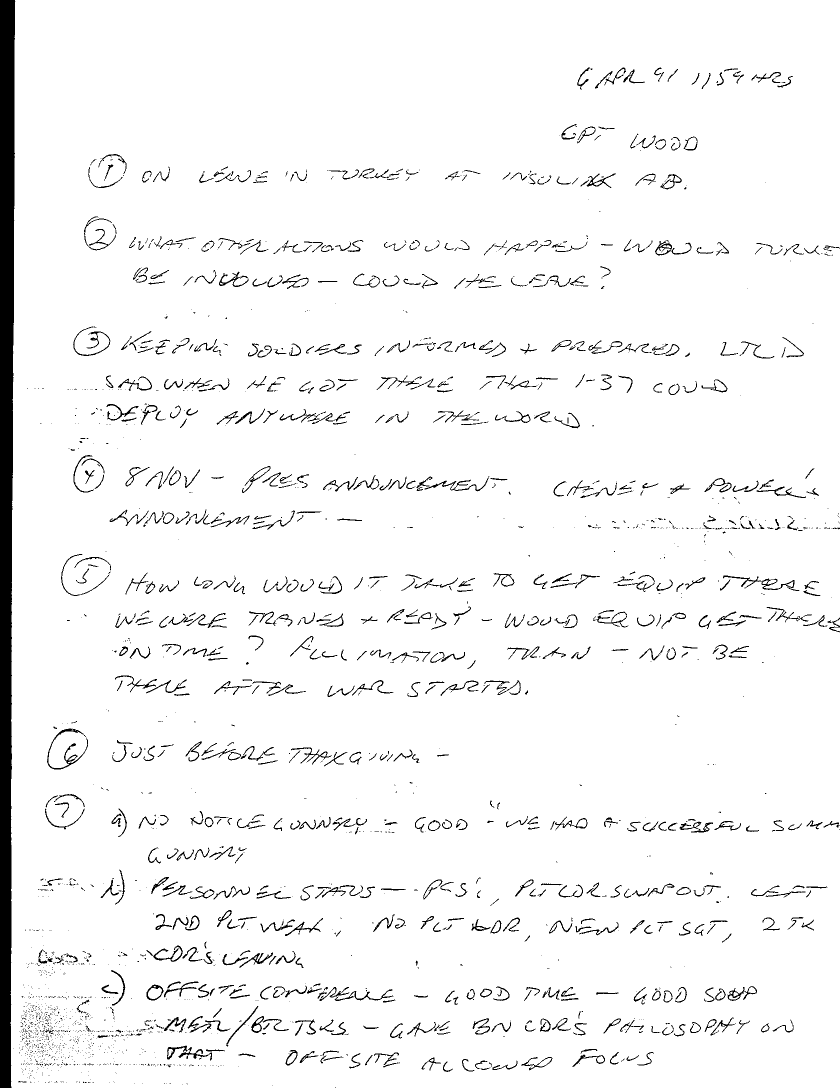 6 APR 91 1159 HRS
CPT WOOD
① ON LEAVE IN TURKEY AT INSULIK AB.
② WHAT OTHER ACTIONS WOULD HAPPEN - WOULD TURKE
BE INVOLVED - COULD HE LEAVE?
③ KEEPING SOLDIERS INFORMED + PREPARED. LTC D
SAD WHEN HE GOT THERE THAT 1-37 COULD
DEPLOY ANYWHERE IN THE WORLD.
④ 8 NOV - PRES ANNOUNCEMENT. CHENEY + POWELL'S
ANNOUNCEMENT -
⑤ HOW LONG WOULD IT TAKE TO GET EQUIP THERE
WE WERE TRAINED + READY - WOULD EQUIP GET THERE
ON TIME? ACCLIMATION, TRAIN - NOT BE
THERE AFTER WAR STARTED.
⑥ JUST BEFORE THAXGIVING -
⑦ a) NO NOTICE GUNNERY - GOOD - "WE HAD A SUCCESSFUL SUMM
GUNNERY
b) PERSONNEL STATUS - PCS'S, PLT LDR SWAPOUT. LEFT
2ND PLT WEAK, NO PLT LDR, NEW PLT SGT, 2 TK
CDR'S LEAVING
c) OFFSITE CONFERENCE - GOOD TIME - GOOD SOUP
METL/BTL TSKS - GAVE BN CDR'S PHILOSOPHY ON
THAT - OFFSITE ALLOWED FOCUS